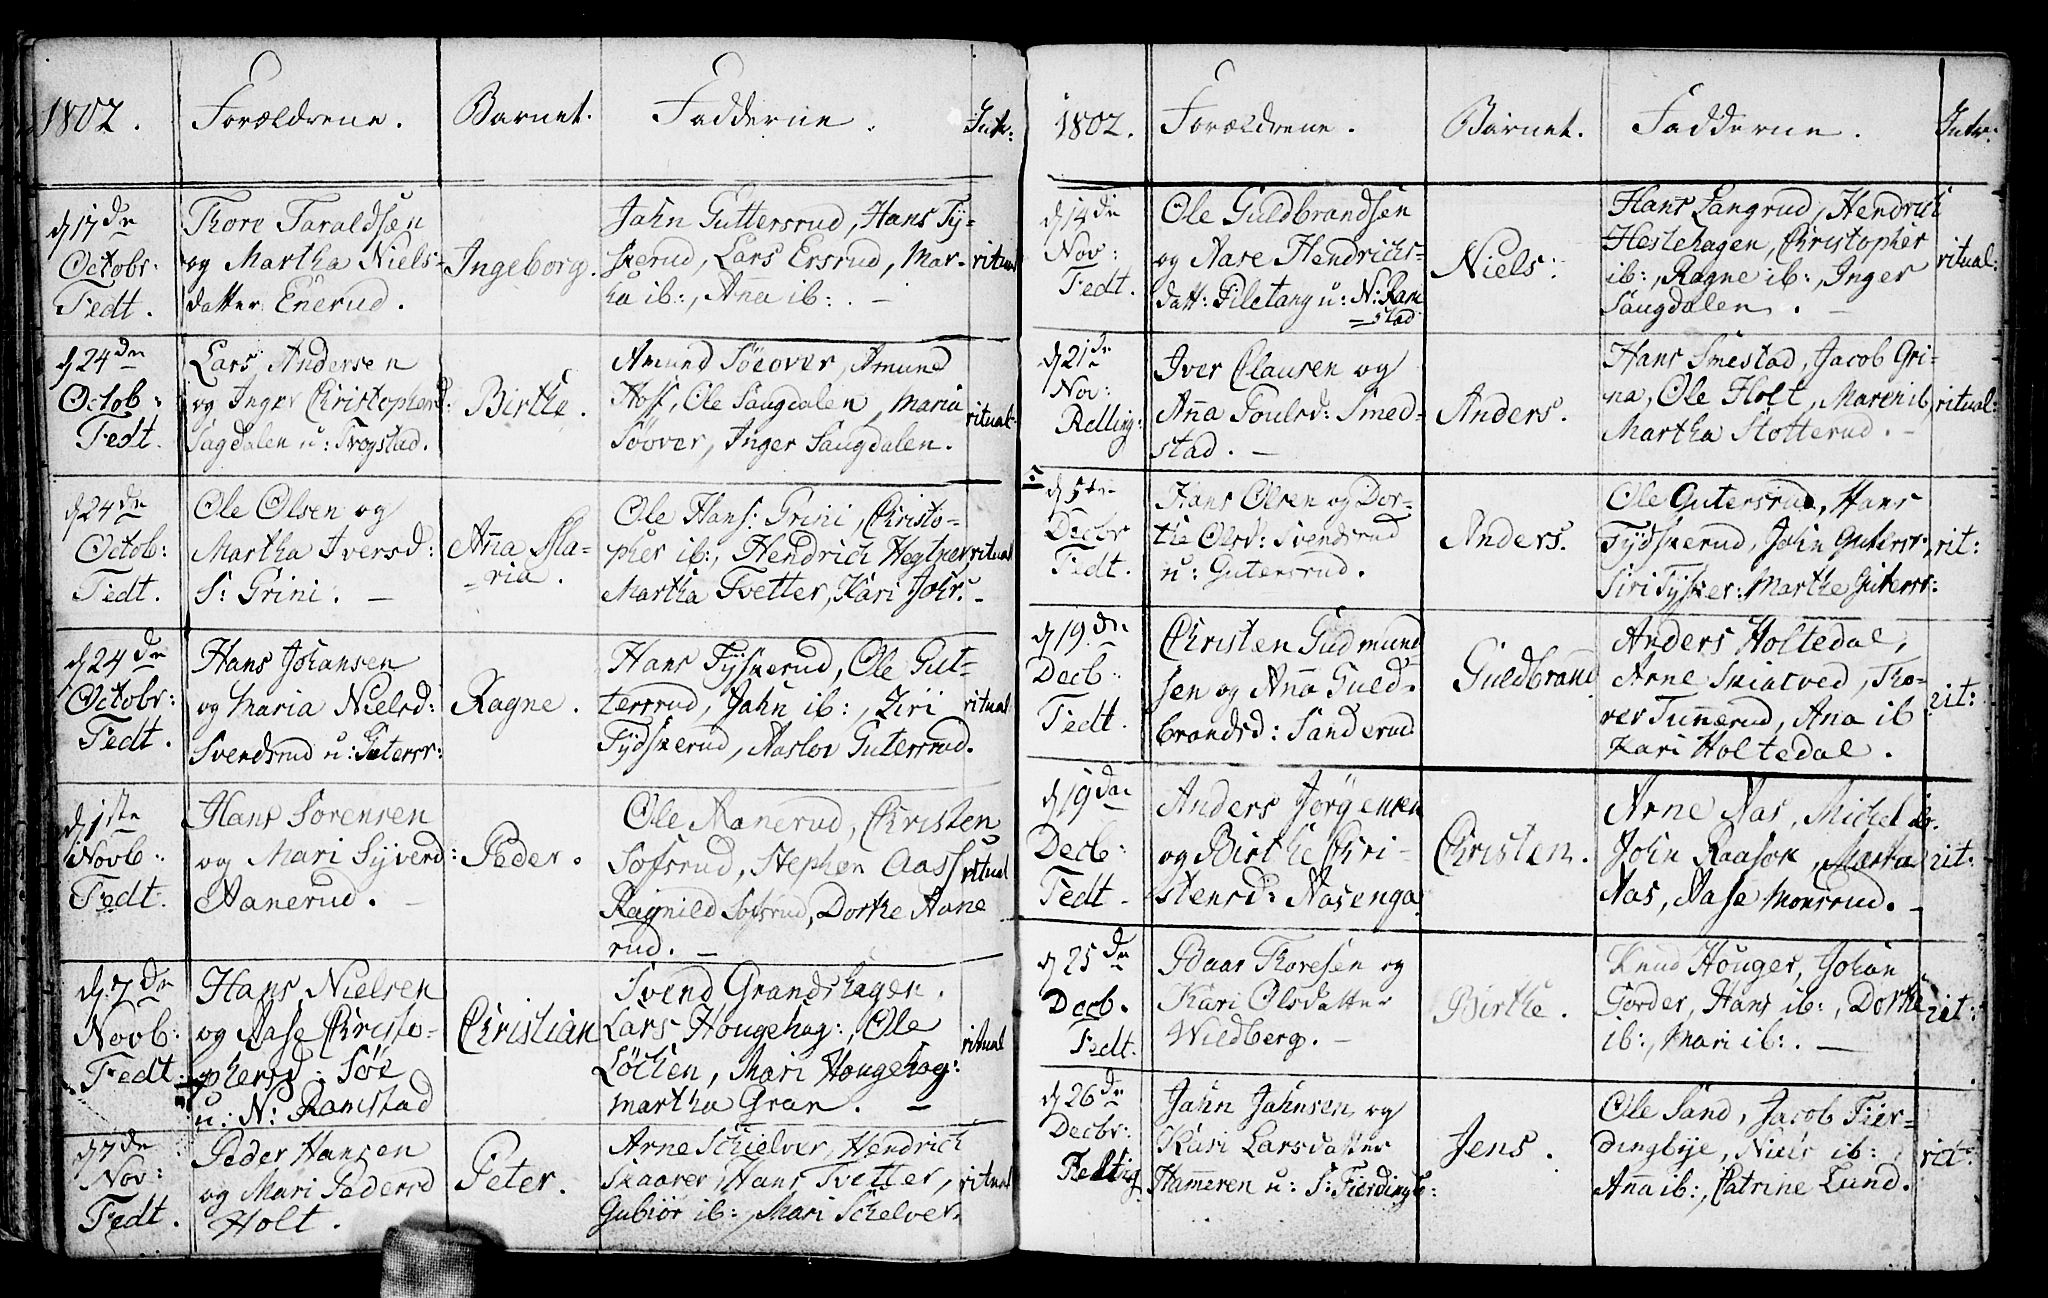 1802. Forældrene. Barnet. Fadderne. Intr:
d 17de
Octobr:
Fedt.
Thore Taraldsen
og Martha Niels-
datter Enerud.
Ingeborg.
Jahn Guttersrud, Hans Ty-
skerud, Lars Ersrud, Mar-
ha ib:, Ana ib: . —
ritual
d 24de
Octob:
Fedt.
Lars Andersen
og Inger Christophersd:
Sagdalen u: Trogstad.
Birthe.
Amund Söeover, Amund
Hoff, Ole Saugdalen, Maria
Söover, Inger Saugdalen.
ritual
d 24de
Octob:
Fedt.
Ole Olsen og
Martha Iversd:
S: Grini. —
Aña Ma-
ria.
Ole Hans: Grini, Christo-
pher ib:, Hendrich Hegtner
Martha Tvetter, Kari Johr: -
ritual
d 24de
Octobr:
Fedt.
Hans Johansen
og Maria Nielsd:
Svendsrud u: Gutersr:
Ragne.
Hans Tyskerud, Ole Gut-
tersrud, Jahn ib:, Ziri
Tydskerud, Aaslov Gutersrud.
ritual
d 1ste
Novb:
Fedt.
Hans Sörensen
og Mari Syverd:
Aanerud. —
Peder.
Ole Aanerud, Christen
Sofsrud, Stephen Aass
Ragnild Sofsrud, Dorthe Aane
rud. —
ritual
d. 7de
Novb:
Fedt:
Hans Nielsen
og Aase Christo-
phersd: Söe
u: N: Ramstad
Christian
Svend Grandshagen.
Lars Hougehag:, Ole
Löcken, Mari Hougehag:
Martha Gran. —
ritual
d 7de
Nov:
Fedt.
Peder Hansen
og Mari Pedersd
Holt.
Peter.
Arne Schielver, Hendrich
Skaarer, Hans Tvetter,
Gubiör ib:, Mari Schelver.
ritual
1802. Forældrene. Barnet. Fadderne. Intr:
d 14de
Nov:
Fedt.
Ole Guldbrandsen
og Aase Hendrichs-
datt: Piletang u: N: Ram
— stad
Niels:
Hans Langrud, Hendrich
Hestehagen, Christopher
ib:, Ragne ib:, Inger
Saugdalen. —
ritual:
d 21de
Nov:
Relling:
Iver Clausen og
Aña Poulsd: Smed-
stad. —
Anders.
Hans Smestad, Jacob Gri-
na, Ole Holt, Maren ib,
Martha Stotterud. —
ritual:
d 5te
Decbr
Fedt.
Hans Olsen og Dor-
the Olsd: Svendsrud
u: Gutersrud.
Anders.
Ole Gutersrud, Hans
Tydskerud, John Gutersr:
Siri Tysker: Marthe Gutersr:
rit:
d 19de
Decb:
Fedt.
Christen Gudmund
sen og Aña Guld-
brandsd: Sanderud
Guldbrand
Anders Holtedal,
Arne Skiatved, Tho-
rer Tuñerud, Ana ib
Kari Holtedal.
rit:
d 19de
Decb:
Fedt.
Anders Jörgensen
og Birthe Chri-
stensd: Aasenga
Christen.
Arne Aas, Michel ib.
John Raasok, Martha
Aas, Aase Monsrud. —
rit:
d 25de
Decb.
Fedt.
Baar Thoresen og
Kari Olsdatter
Wildberg. —
Birthe.
Knud Houger, Johan
Gorder, Hans ib:, Dorthe
ib:, Mari ib: . —
rit:
d 26de
Decbr:
Jahn Jahnsen og
Kari Larsdatter
Hameren u: S: Fierdingb:
Jens.
Ole Sand, Jacob Fier-
dingbye, Niels ib:,
Ana ib:, Catrine Lund.
rit: